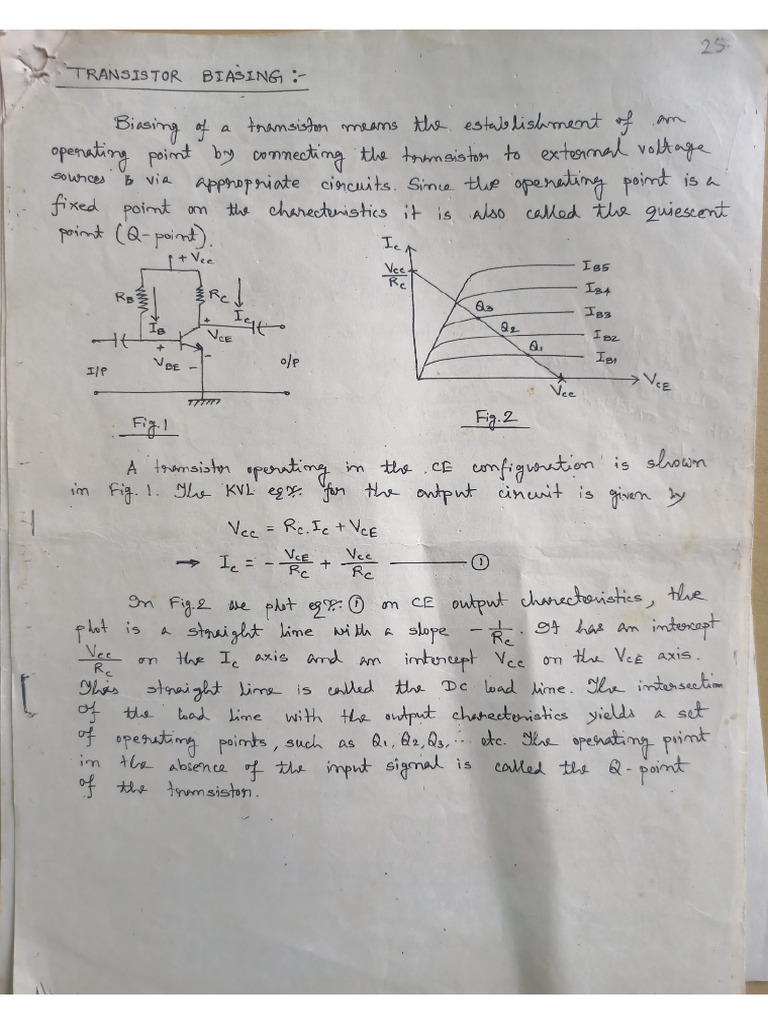 25.
TRANSISTOR BIASING :-
Biasing of a transistor means the establishment of an
operating point by connecting the transistor to external voltage
sources & via appropriate circuits. Since the operating point is a
fixed point on the charecteristics it is also called the quiescent
point (Q-point).
+ Vcc
RB
RC
IB
IC
+
VCE
-
+
VBE -
I/P
O/P
Fig.1
IC
Vcc/RC
IB5
IB4
IB3
IB2
IB1
Q3
Q2
Q1
VCE
Vcc
Fig.2
A transistor operating in the CE configuration is shown
in Fig. 1. The KVL eqn. for the output circuit is given by
Vcc = RC.IC + VCE
→ IC = - VCE/RC + Vcc/RC ——— ①
In Fig.2 we plot eqn. ① on CE output charecteristics, the
plot is a straight line with a slope - 1/RC. It has an intercept
Vcc/RC on the IC axis and an intercept Vcc on the VCE axis.
This straight line is called the DC load line. The intersection
of the load line with the output charecteristics yields a set
of operating points, such as Q1, Q2, Q3, ... etc. The operating point
in the absence of the input signal is called the Q-point
of the transistor.